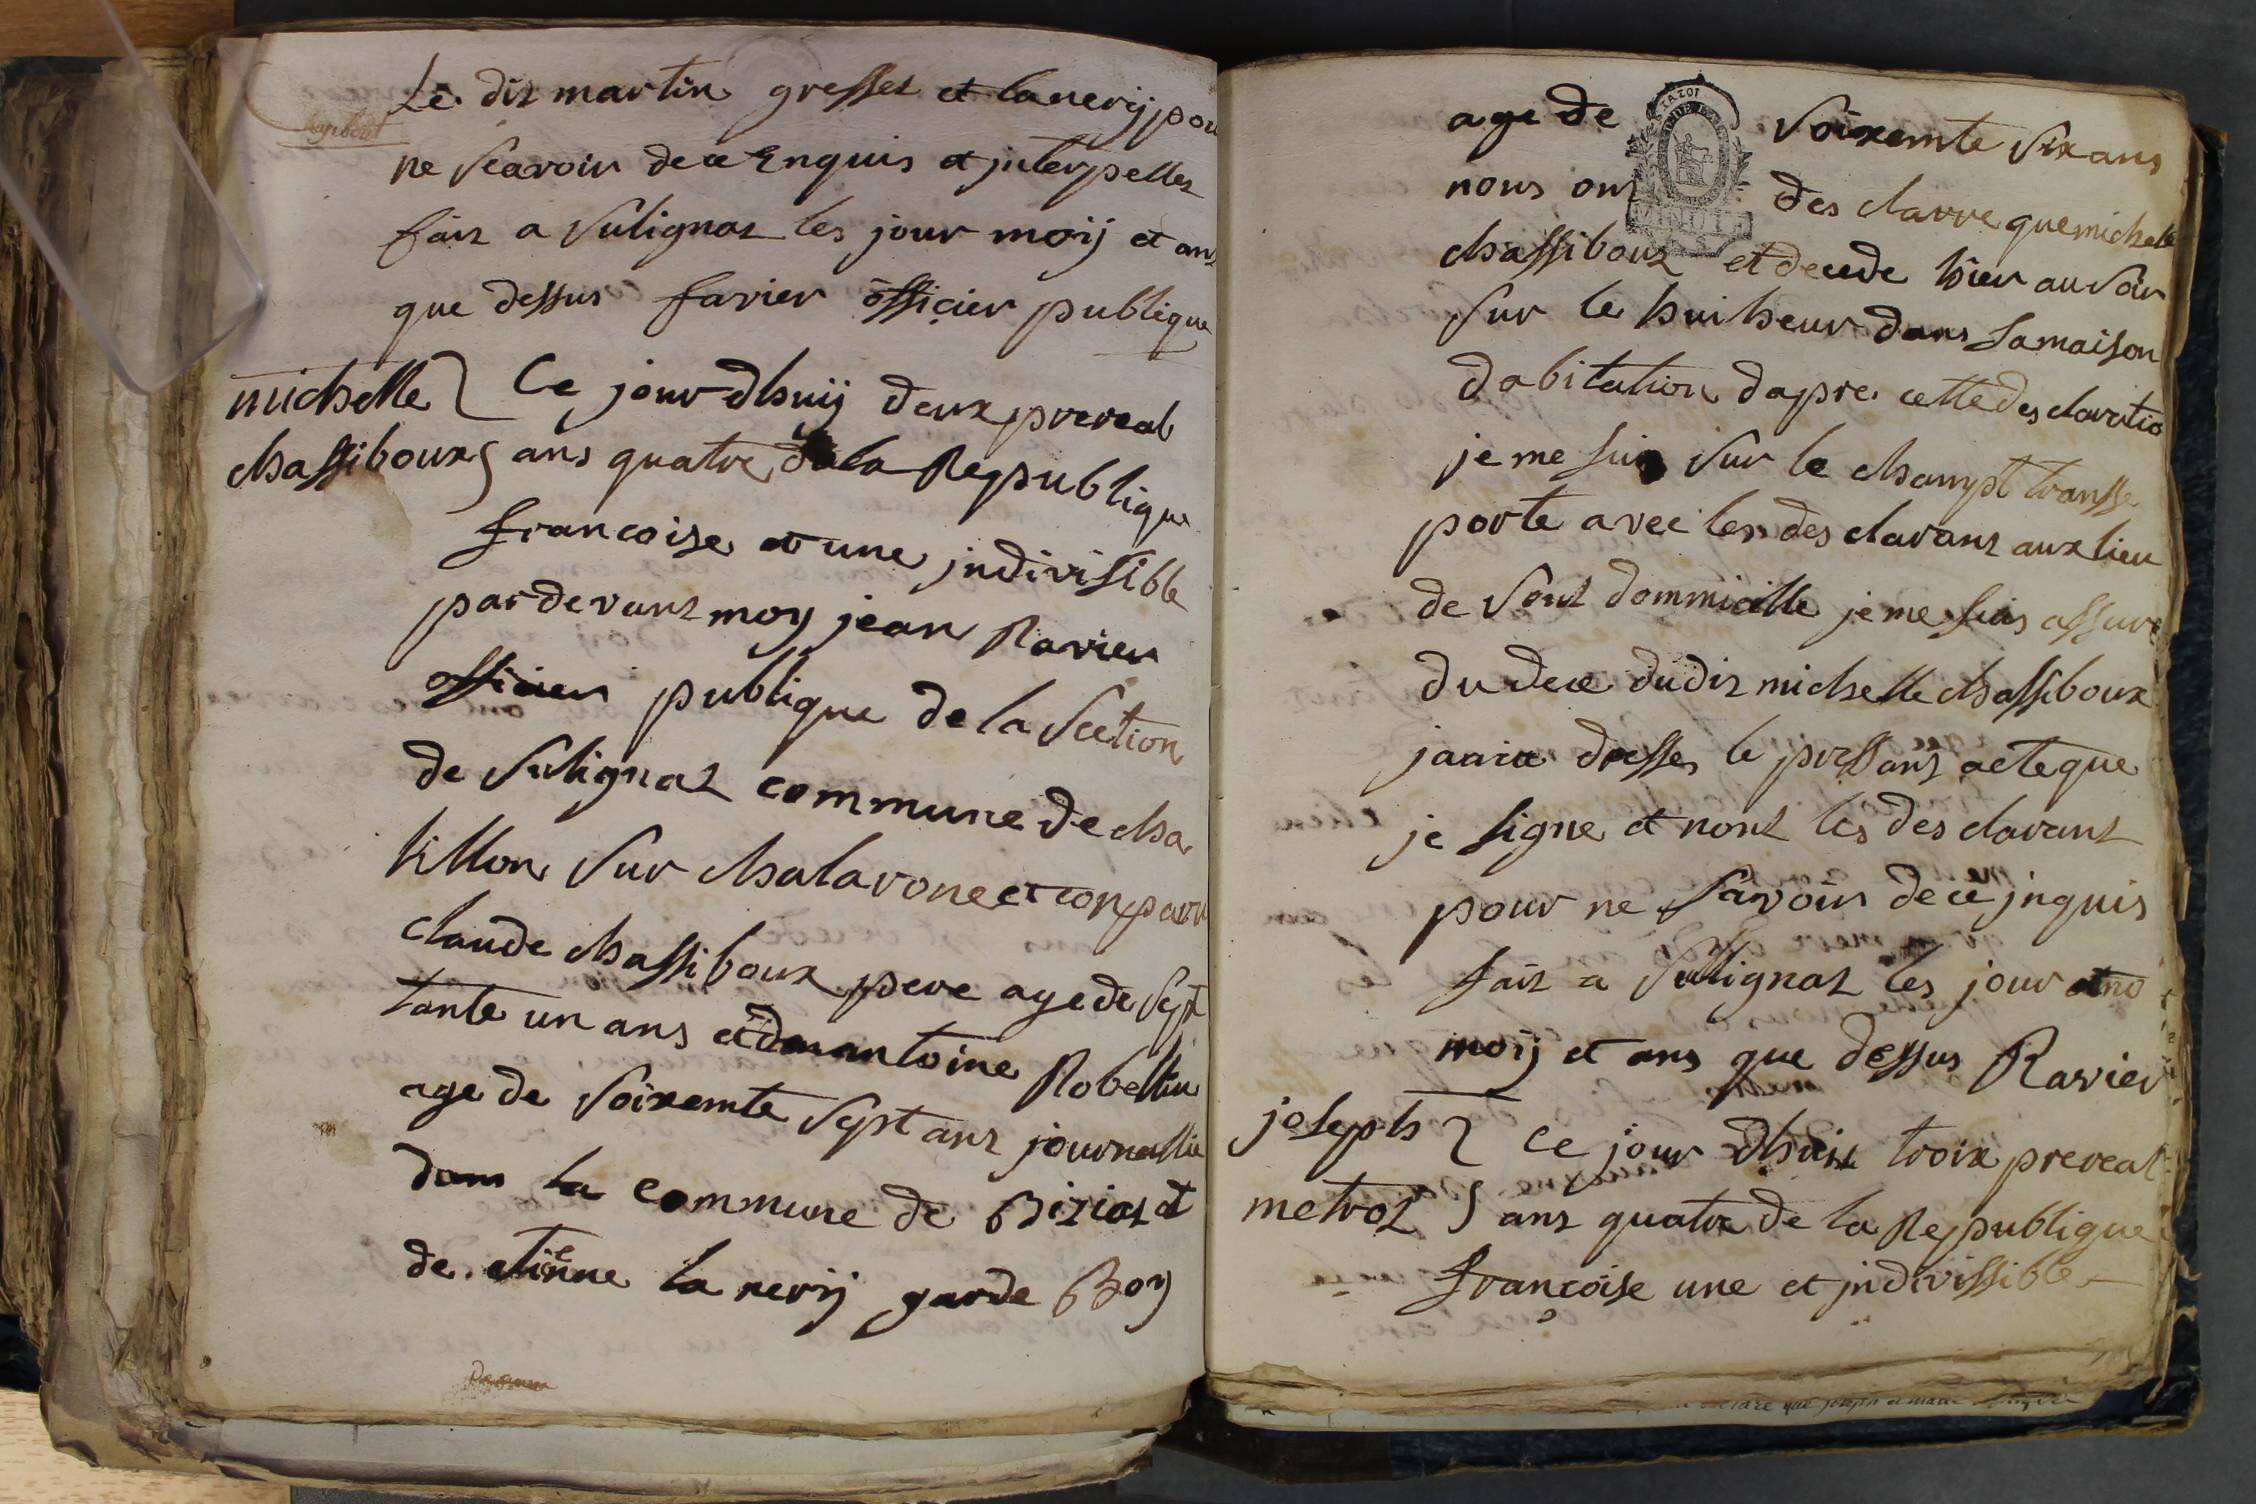 Le dit martin gresset et lanerij pou
ne Seavoir de ce Enquis et jnterpellez
fait a Sulignat les jour moij et ans
que dessus favier officier publique
michelle
chassiboux
Ce jourdhuij deux prereal
ans quatre de la Republique
francoise et une jndivisible
pardevant moy jean Ravier
officier publique de la Section
de Sulignat commune de cha
tillon Sur chalarone et conparu
claude chassiboux pere age de Sept
tante un ans et antoine Robellin
age de Soixemte Sept ans journallie
dans la commune de Biziat et
de etienne la nerij garde Boy
age de Soixemte Six ans
nous ont des clarre que michelle
chassiboux et decede hier au Soir
Sur le huiheur dans Samaison
dabitation dapre cette des claratio
je me suis Sur le champt transse
porte avec les des clarant aux lieu
de Sont dommicille je me suis assure
du dece dudit michelle chassiboux
jaaice dresses le pressant acte que
je signe et nont les des clarant
pour ne Savoir de ce jnquis
fait a Sullignat les jour
moij et ans que dessus Ravier
joseph
metrat
Ce jour dhuit troix prereal
ans quatre de la Republique
françoise une et jndivissible
MINUTE